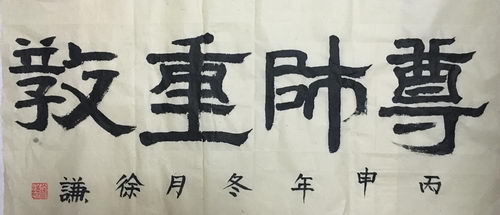 尊師重教
丙申年冬月徐謙